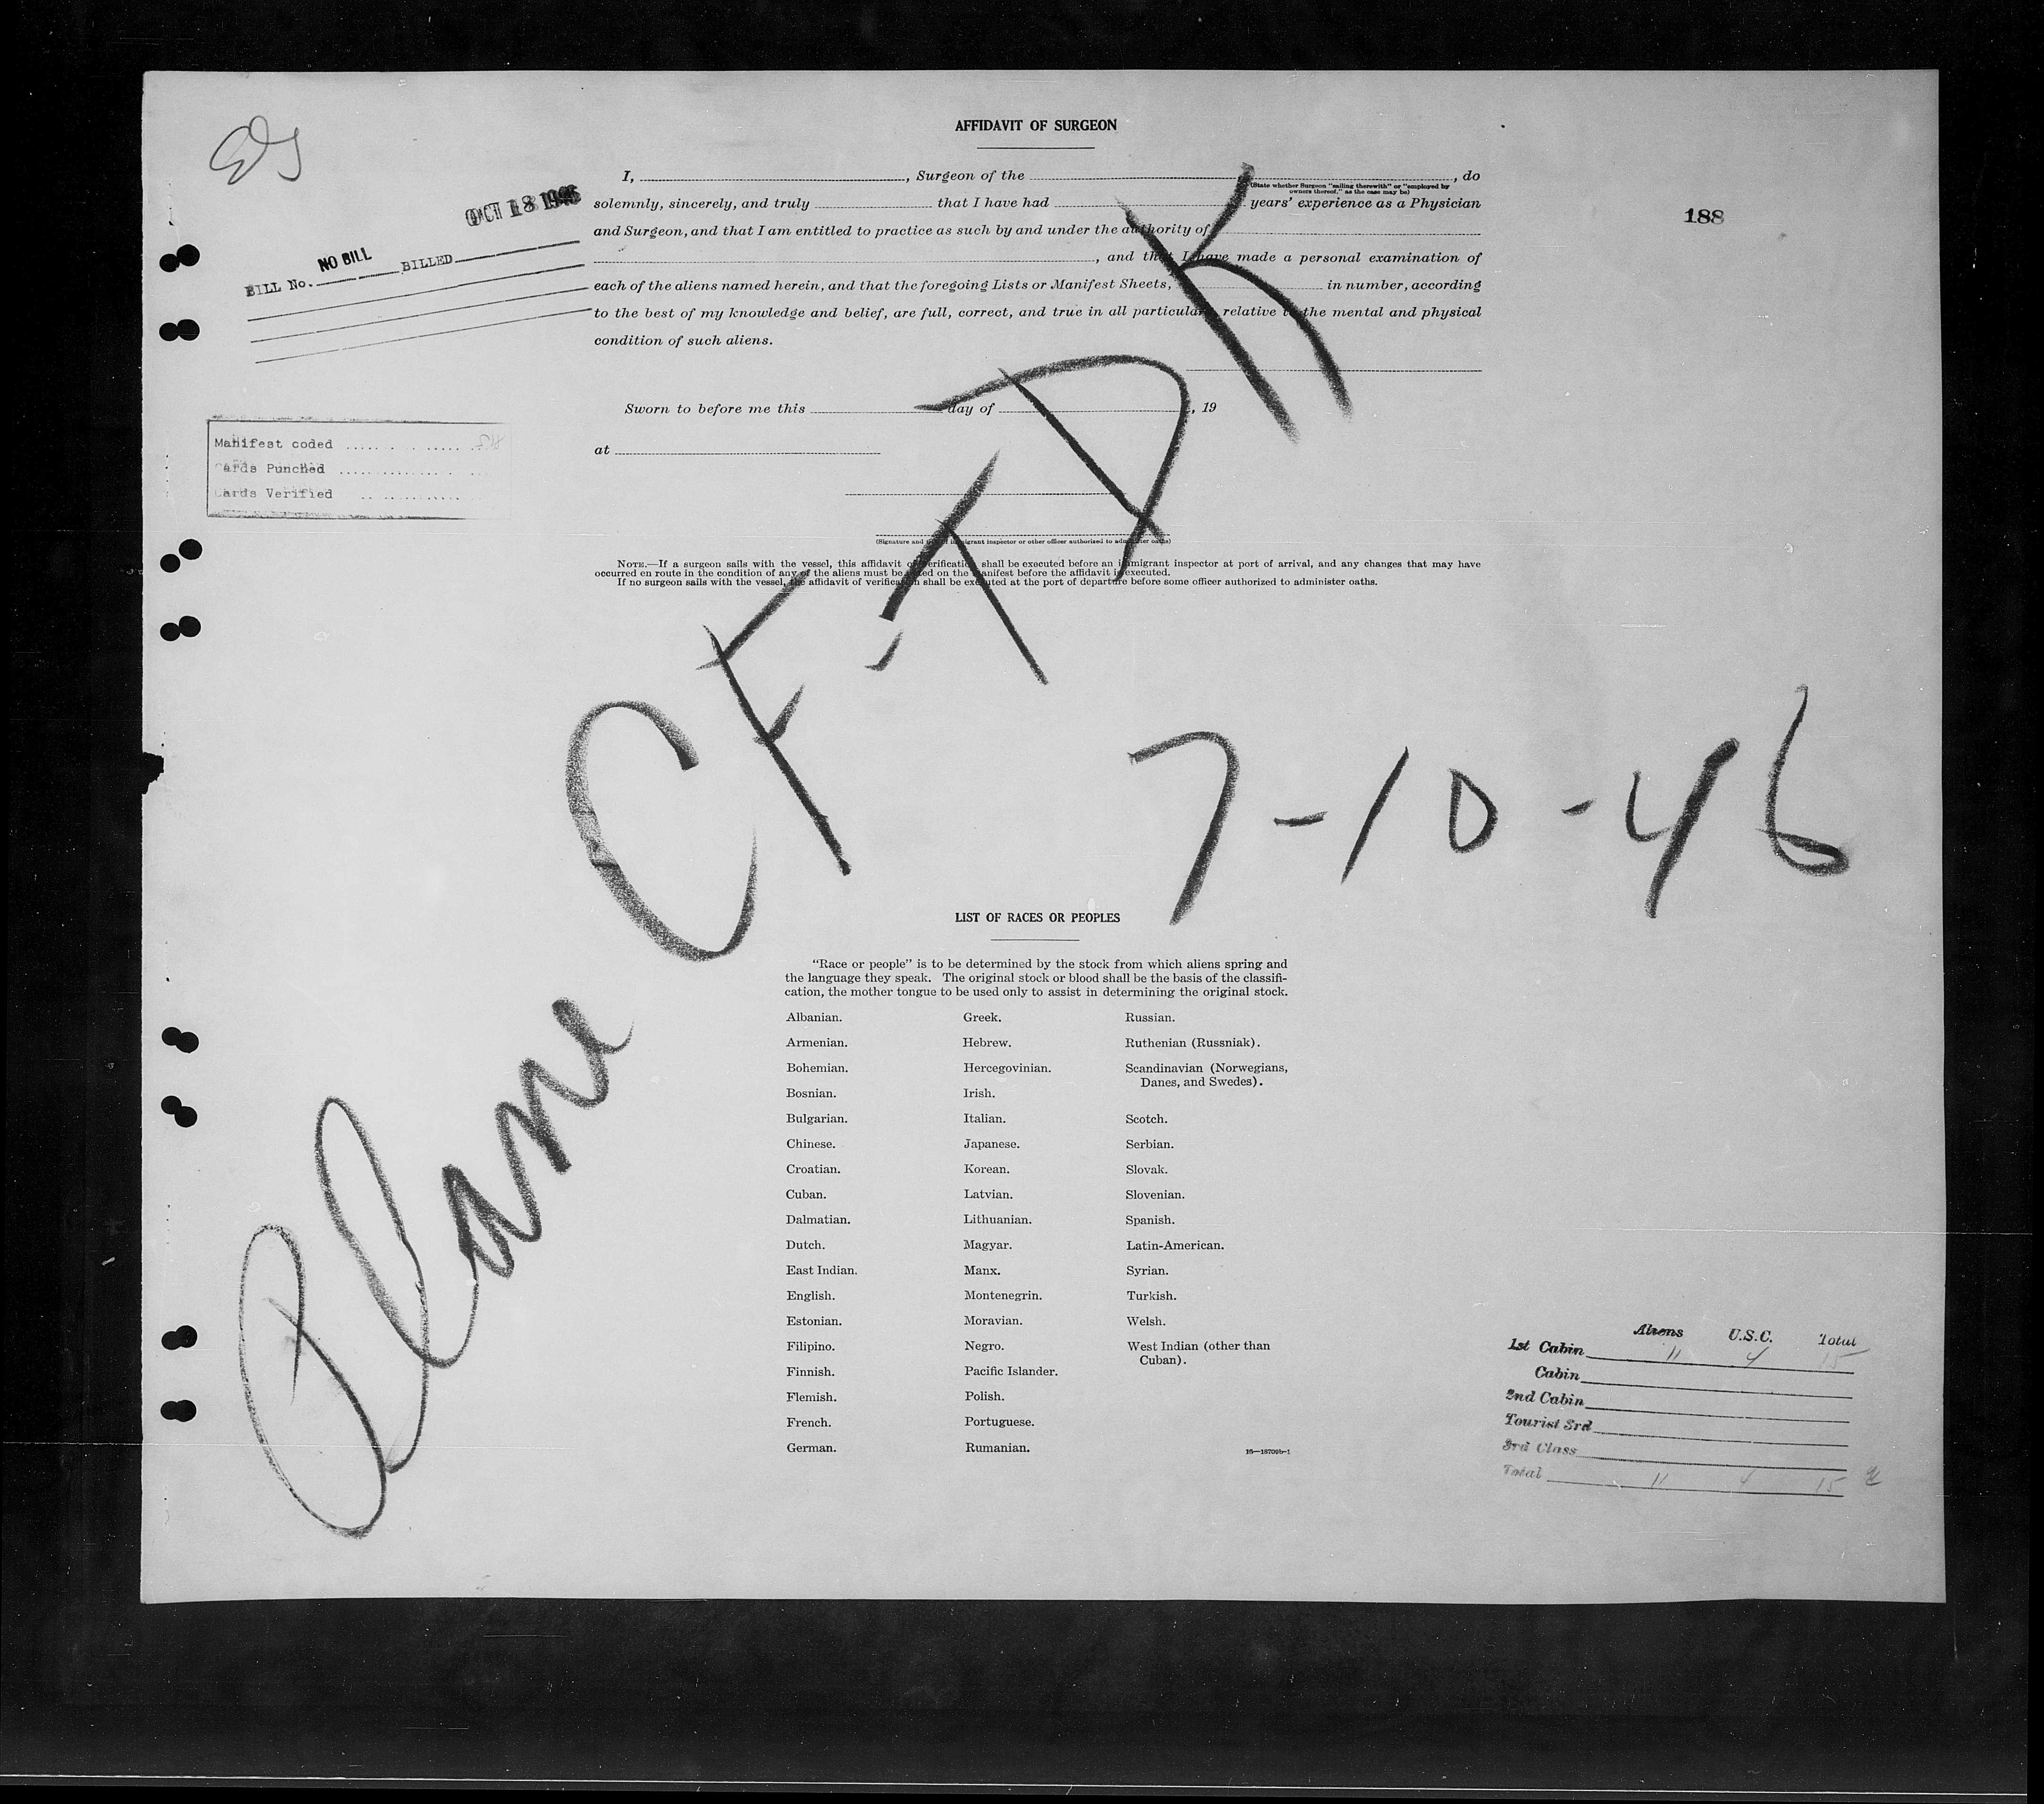 AFFIDAVIT OF SURGEON
I, , Surgeon of the , do
(State whether Surgeon "sailing therewith" or "employed by
owners thereof," as the case may be)
solemnly, sincerely, and truly that I have had years' experience as a Physician
and Surgeon, and that I am entitled to practice as such by and under the authority of
, and that I have made a personal examination of
each of the aliens named herein, and that the foregoing Lists or Manifest Sheets, in number, according
to the best of my knowledge and belief, are full, correct, and true in all particulars relative to the mental and physical
condition of such aliens.
Sworn to before me this day of , 19
at
(Signature and title of immigrant inspector or other officer authorized to administer oaths)
NOTE.—If a surgeon sails with the vessel, this affidavit of verification shall be executed before an immigrant inspector at port of arrival, and any changes that may have
occurred en route in the condition of any of the aliens must be noted on the manifest before the affidavit is executed.
If no surgeon sails with the vessel, the affidavit of verification shall be executed at the port of departure before some officer authorized to administer oaths.
OCT 18
188
NO BILL
BILL No. BILLED
Manifest coded
Cards Punched
Cards Verified
Plane CF-TDK
7-10-46
LIST OF RACES OR PEOPLES
"Race or people" is to be determined by the stock from which aliens spring and
the language they speak. The original stock or blood shall be the basis of the classifi-
cation, the mother tongue to be used only to assist in determining the original stock.
Albanian. Greek. Russian.
Armenian. Hebrew. Ruthenian (Russniak).
Bohemian. Hercegovinian. Scandinavian (Norwegians,
Danes, and Swedes).
Bosnian. Irish.
Bulgarian. Italian. Scotch.
Chinese. Japanese. Serbian.
Croatian. Korean. Slovak.
Cuban. Latvian. Slovenian.
Dalmatian. Lithuanian. Spanish.
Dutch. Magyar. Latin-American.
East Indian. Manx. Syrian.
English. Montenegrin. Turkish.
Estonian. Moravian. Welsh.
Filipino. Negro. West Indian (other than
Cuban).
Finnish. Pacific Islander.
Flemish. Polish.
French. Portuguese.
German. Rumanian.
16—18709b-1
Aliens U.S.C. Total
1st Cabin 11 4 15
Cabin
2nd Cabin
Tourist 3rd
3rd Class
Total 11 4 15